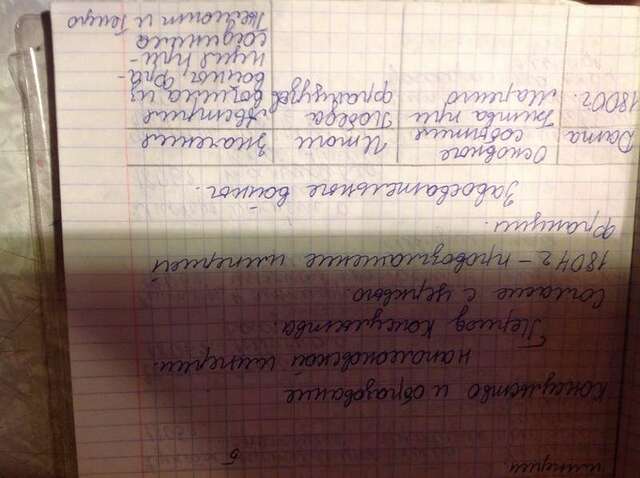 империи.
5
Консульство и образование
наполеоновской империи.
Период Консульства.
Согласие с церквью.
1804 г – провозглашение империей
Франции.
Завоевательные войны.
Дата
Основные
события
Итоги
Значения
1800г.
Битва при
Маренго
Победа
французов
Австрия
вышла из
войны, Фра-
нция при-
соединила
Пьемонт и